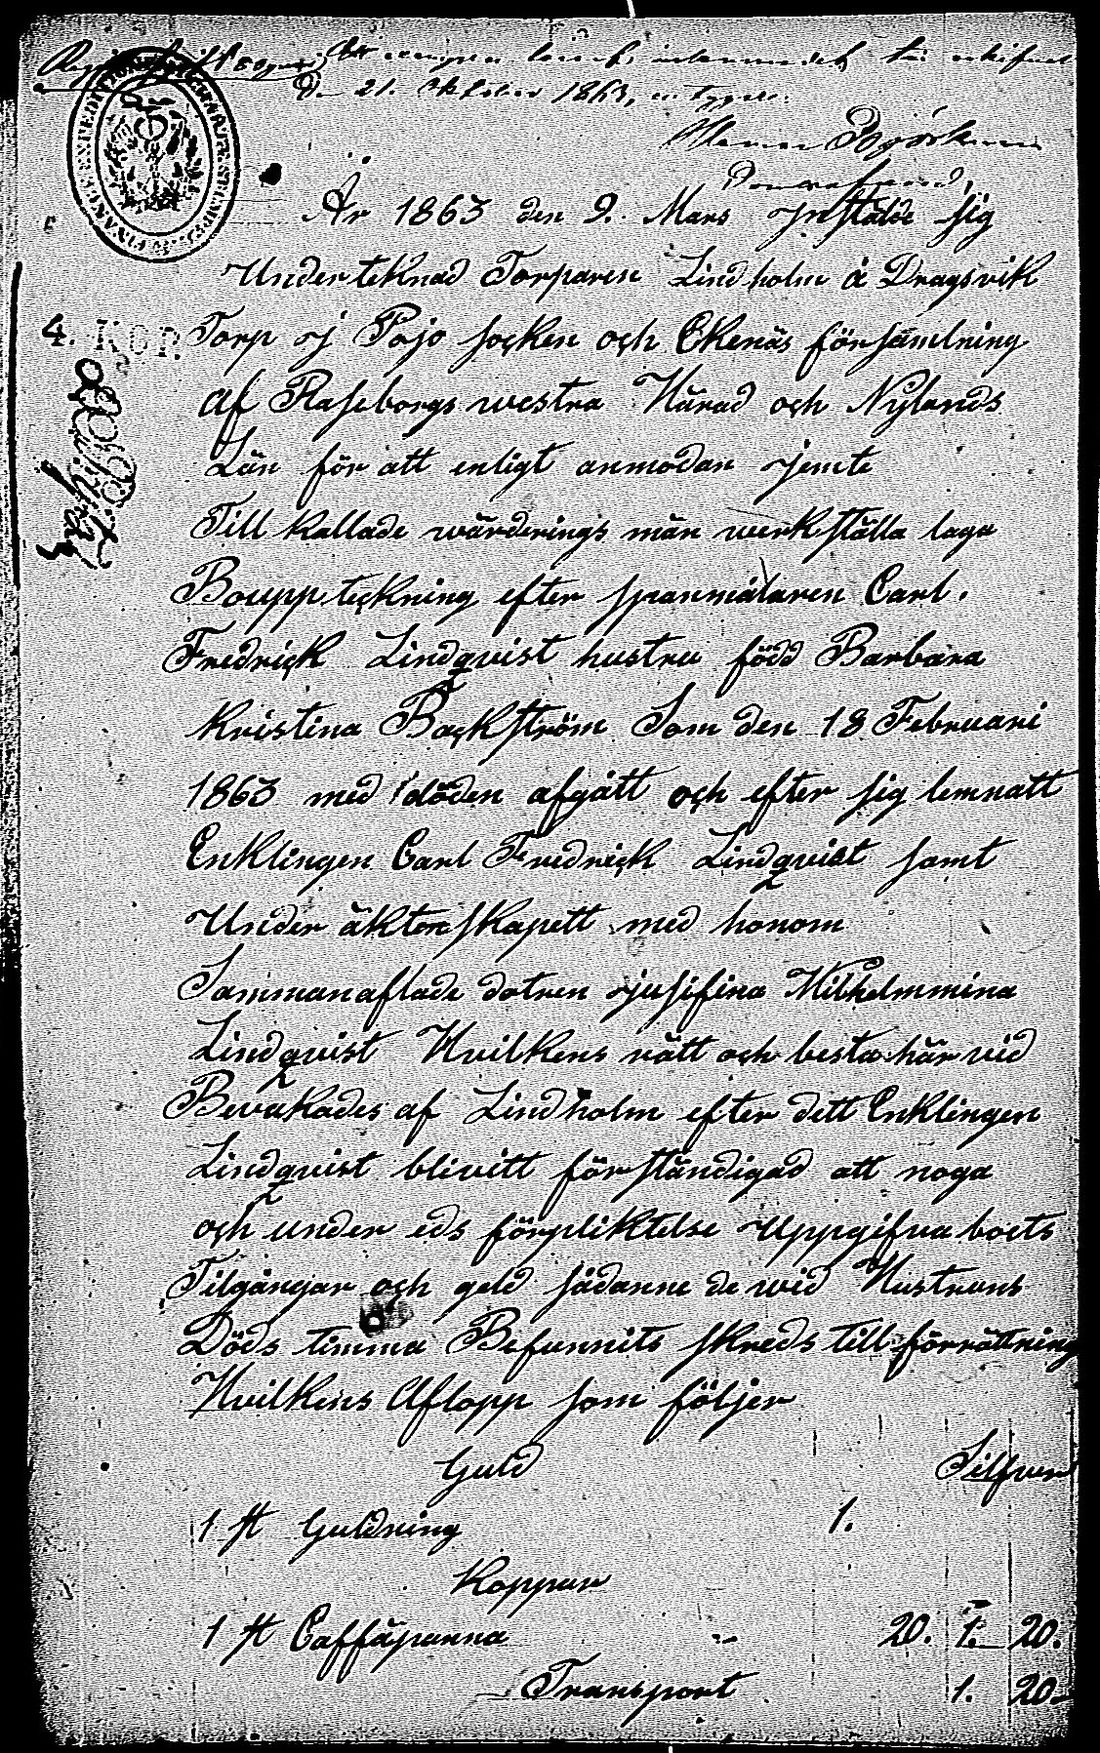 den 21. Oktober 1863, intygar.
År 1863 den 9. Mars instälde sig
Underteknad Torparen Lindholm å Dragsvik
4. KOP.
Torp i Pojo socken och Ekenäs församlning
af Raseborgs westra Härad och Nylands
Län för att enligt anmodan jemte
Till kallade wärderings män werkställa laga
Boupptekning efter spanmålaren Carl.
Fredrick Lindqvist hustru född Barbara
Kristina Backström Som den 18 Februari
1863 med döden afgått och efter sig lemnatt
Enklingen Carl Fredrick Lindqvist samt
Under äktenskapett med honom
Sammanaflade dotren Jusifina Wilhelmmina
Lindqvist Hvilkens rätt och besta härvid
Bevakades af Lindholm efter dett Enklingen
Lindqvist blivitt förständigad att noga
och under eds förpliktelse Uppgifva boets
Tilgångar och geld sådanne de wid Hustruns
Döds timma Befunnits skreds till förrättning
Hvilkens Aflopp som följer
Guld Silfver
1 st Guldring 1.
Koppar
1 st Caffäpanna " 20. 1. 20.
Transport 1. 20.